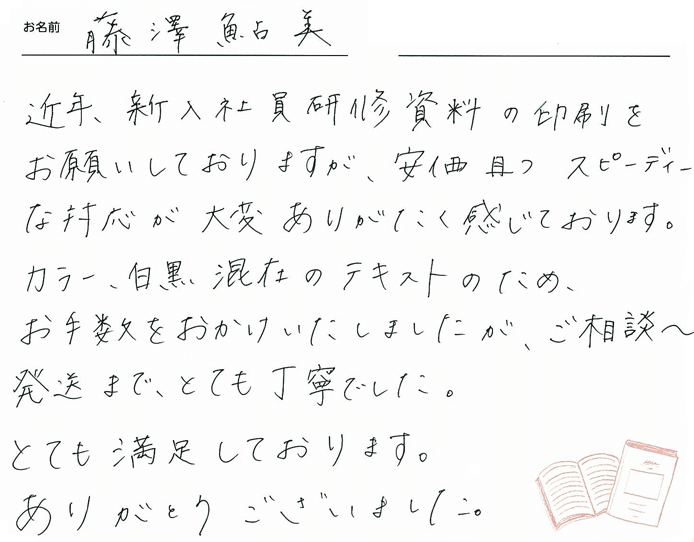 お名前 藤澤 鮎美
近年、新入社員研修資料の印刷を
お願いしておりますが、安価且つ スピーディー
な対応が 大変 ありがたく感じております。
カラー、白黒 混在の テキストのため、
お手数をおかけいたしましたが、ご相談〜
発送まで、とても丁寧でした。
とても満足しております。
ありがとうございました。